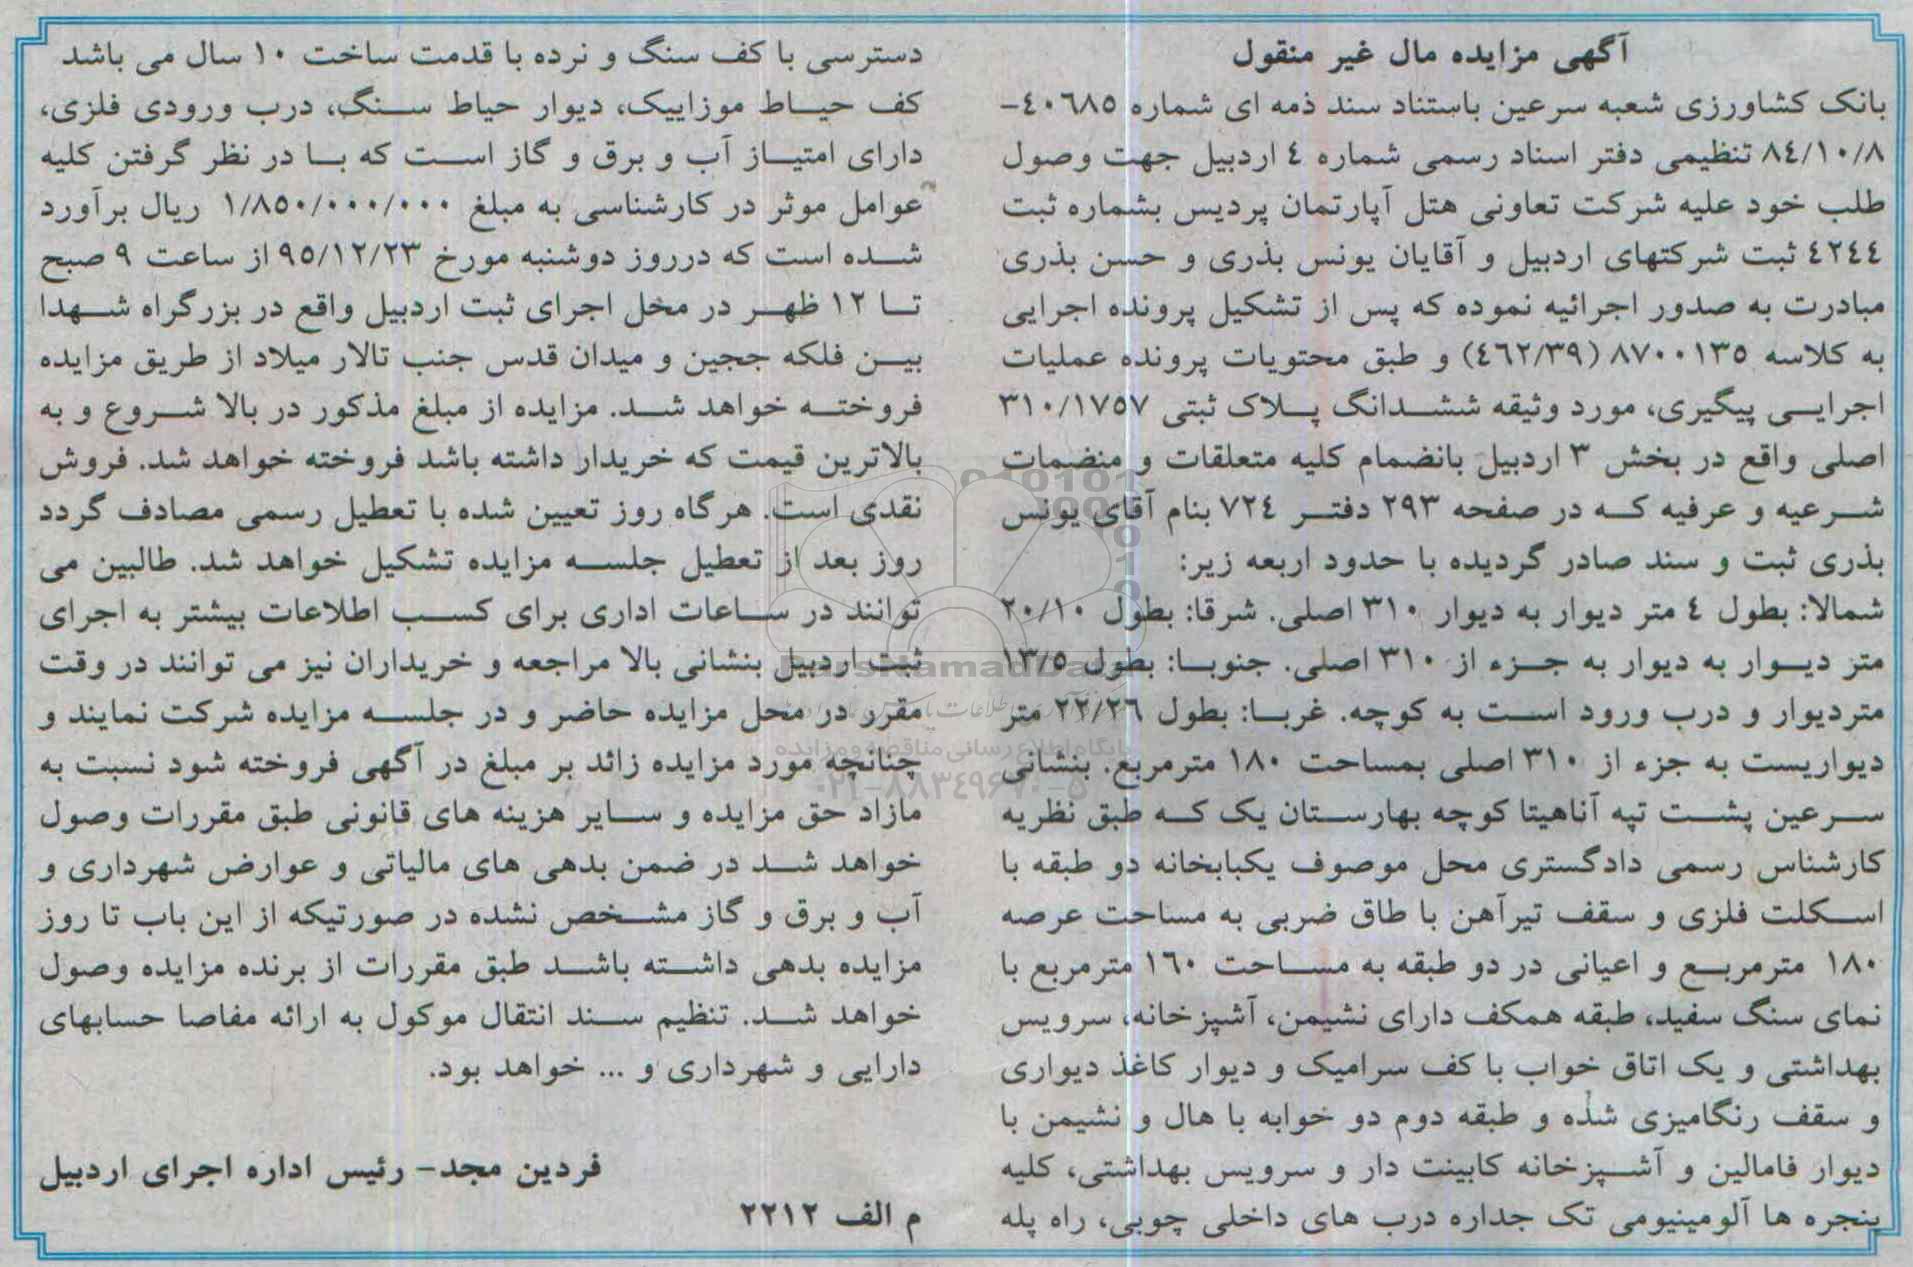 آگهی مزایده مال غیر منقول
بانک کشاورزی شعبه سرعین باستناد سند ذمه ای شماره ٤٠٦٨٥-
٨٤/١٠/٨ تنظیمی دفتر اسناد رسمی شماره ٤ اردبیل جهت وصول
طلب خود علیه شرکت تعاونی هتل آپارتمان پردیس بشماره ثبت
٤٢٤٤ ثبت شرکتهای اردبیل و آقایان یونس بذری و حسن بذری
مبادرت به صدور اجرائیه نموده که پس از تشکیل پرونده اجرایی
به کلاسه ٨٧٠٠١٣٥ (٤٦٢/٣٩) و طبق محتویات پرونده عملیات
اجرایی پیگیری، مورد وثیقه ششدانگ پلاک ثبتی ٣١٠/١٧٥٧
اصلی واقع در بخش ٣ اردبیل بانضمام کلیه متعلقات و منضمات
شرعیه و عرفیه که در صفحه ٢٩٣ دفتر ٧٢٤ بنام آقای یونس
بذری ثبت و سند صادر گردیده با حدود اربعه زیر:
شمالا: بطول ٤ متر دیوار به دیوار ٣١٠ اصلی. شرقا: بطول ٢٠/١٠
متز دیوار به دیوار به جزء از ٣١٠ اصلی. جنوبا: بطول ١٣/٥
متردیوار و درب ورود است به کوچه. غربا: بطول ٢٢/٢٦ متر
دیواریست به جزء از ٣١٠ اصلی بمساحت ١٨٠ مترمربع. بنشانی
سرعین پشت تپه آناهیتا کوچه بهارستان یک که طبق نظریه
کارشناس رسمی دادگستری محل موصوف یکبابخانه دو طبقه با
اسکلت فلزی و سقف تیرآهن با طاق ضربی به مساحت عرصه
١٨٠ مترمربع و اعیانی در دو طبقه به مساحت ١٦٠ مترمربع با
نمای سنگ سفید، طبقه همکف دارای نشیمن، آشپزخانه، سرویس
بهداشتی و یک اتاق خواب با کف سرامیک و دیوار کاغذ دیواری
و سقف رنگامیزی شده و طبقه دوم دو خوابه با هال و نشیمن با
دیوار فامالین و آشپزخانه کابینت دار و سرویس بهداشتی، کلیه
پنجره ها آلومینیومی تک جداره درب های داخلی چوبی، راه پله
دسترسی با کف سنگ و نرده با قدمت ساخت ١٠ سال می باشد
کف حیاط موزاییک، دیوار حیاط سنگ، درب ورودی فلزی،
دارای امتیاز آب و برق و گاز است که با در نظر گرفتن کلیه
عوامل موثر در کارشناسی به مبلغ ١/٨٥٠/٠٠٠/٠٠٠ ریال برآورد
شده است که درروز دوشنبه مورخ ٩٥/١٢/٢٣ از ساعت ٩ صبح
تا ١٢ ظهر در مخل اجرای ثبت اردبیل واقع در بزرگراه شهدا
بین فلکه ججین و میدان قدس جنب تالار میلاد از طریق مزایده
فروخته خواهد شد. مزایده از مبلغ مذکور در بالا شروع و به
بالاترین قیمت که خریدار داشته باشد فروخته خواهد شد. فروش
نقدی است. هرگاه روز تعیین شده با تعطیل رسمی مصادف گردد
روز بعد از تعطیل جلسه مزایده تشکیل خواهد شد. طالبین می
توانند در ساعات اداری برای کسب اطلاعات بیشتر به اجرای
ثبت اردبیل بنشانی بالا مراجعه و خریداران نیز می توانند در وقت
مقرر در محل مزایده حاضر و در جلسه مزایده شرکت نمایند و
چنانچه مورد مزایده زائد بر مبلغ در آگهی فروخته شود نسبت به
مازاد حق مزایده و سایر هزینه های قانونی طبق مقررات وصول
خواهد شد در ضمن بدهی های مالیاتی و عوارض شهرداری و
آب و برق و گاز مشخص نشده در صورتیکه از این باب تا روز
مزایده بدهی داشته باشد طبق مقررات از برنده مزایده وصول
خواهد شد. تنظیم سند انتقال موکول به ارائه مفاصا حسابهای
دارایی و شهرداری و ... خواهد بود.
فردین مجد- رئیس اداره اجرای اردبیل
م الف ٢٢١٢
ParsNamadData
پایگاه اطلاع رسانی مناقصه و مزایده
۰۲۱-۸۸۳۴۹۶۷۰-۵